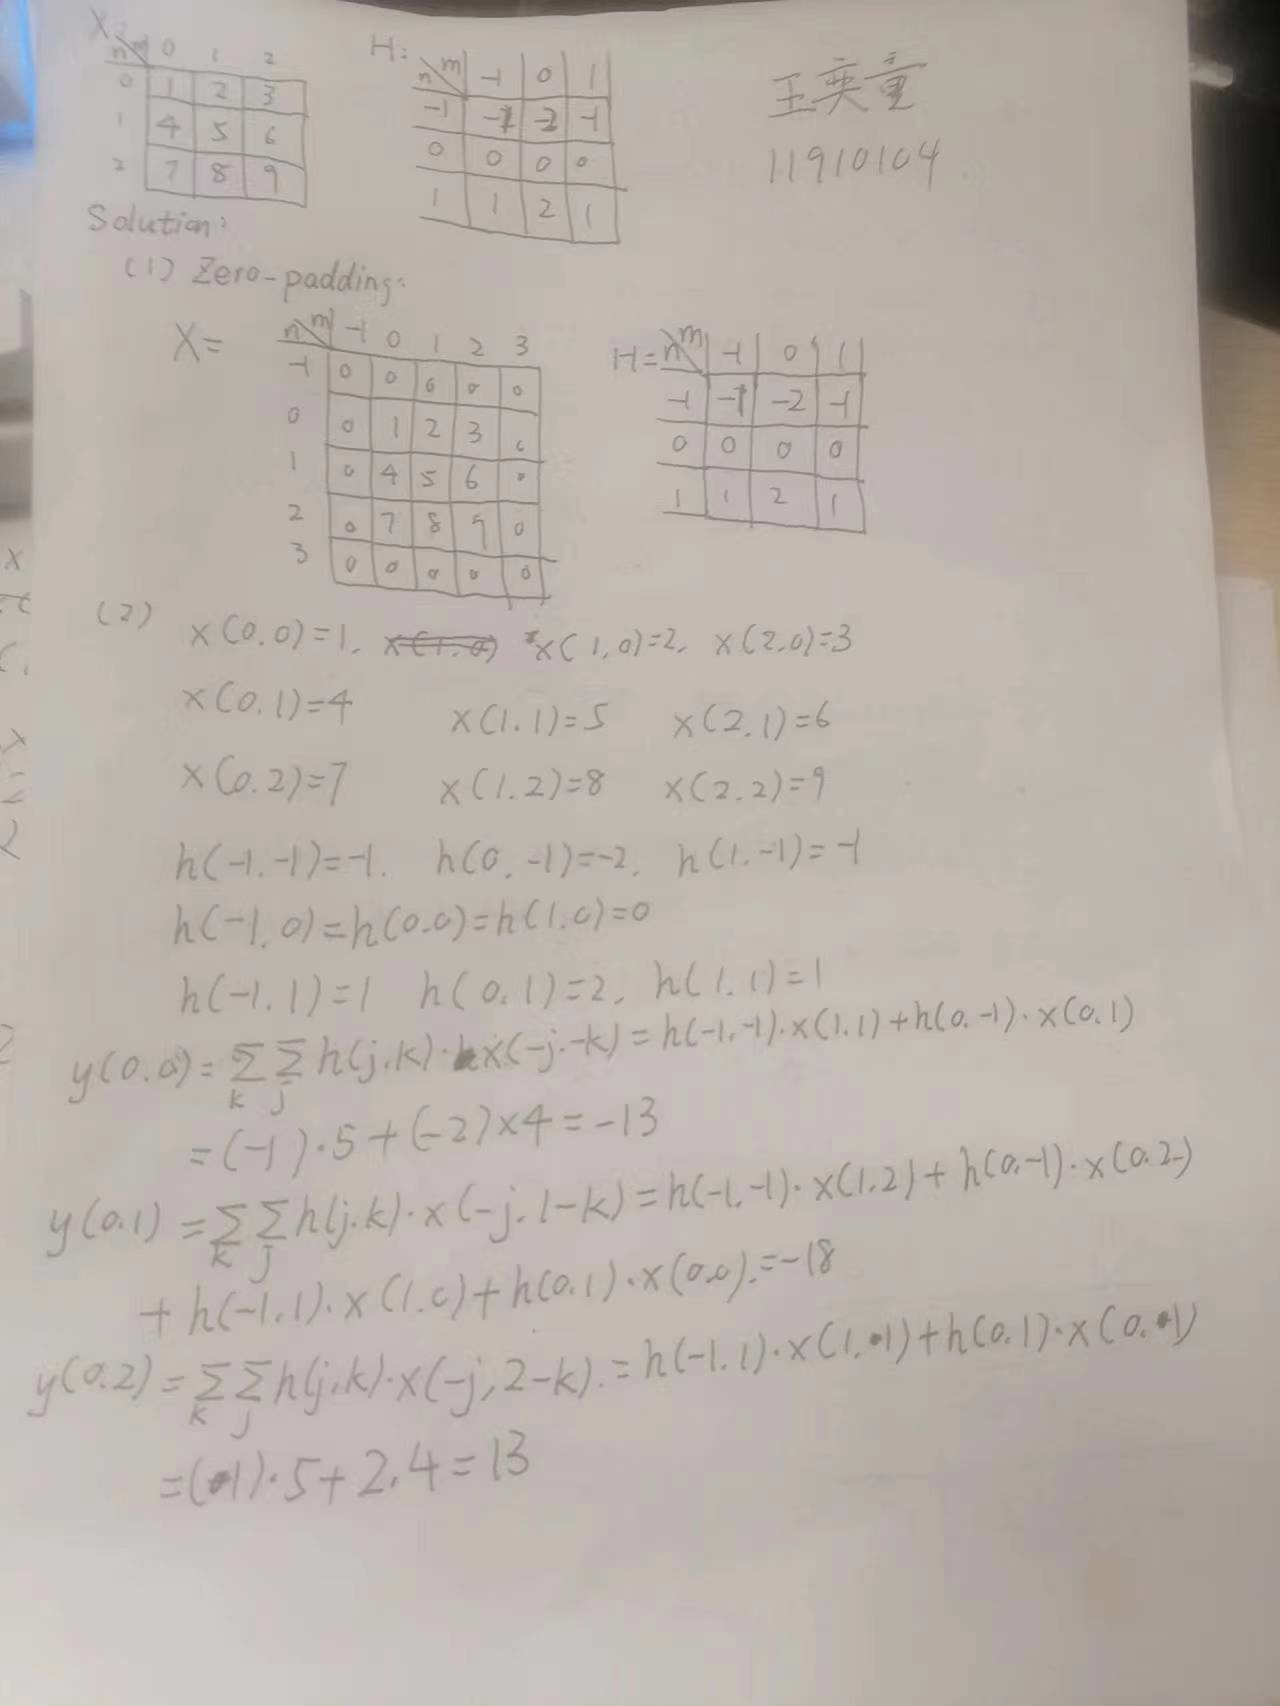 X: n\m 0 1 2
0 1 2 3
1 4 5 6
2 7 8 9
H: n\m -1 0 1
-1 -1 -2 -1
0 0 0 0
1 1 2 1
王奕童
11910104
Solution:
(1) Zero-padding:
X= n\m -1 0 1 2 3
-1 0 0 0 0 0
0 0 1 2 3 0
1 0 4 5 6 0
2 0 7 8 9 0
3 0 0 0 0 0
H= n\m -1 0 1
-1 -1 -2 -1
0 0 0 0
1 1 2 1
(2) x(0.0)=1, x(1,0)=2, x(2,0)=3
x(0.1)=4 x(1.1)=5 x(2.1)=6
x(0.2)=7 x(1.2)=8 x(2.2)=9
h(-1.-1)=-1. h(0.-1)=-2, h(1.-1)=-1
h(-1.0)=h(0.0)=h(1.0)=0
h(-1.1)=1 h(0.1)=2, h(1.1)=1
y(0.0)=∑k∑j h(j.k)·x(-j.-k)=h(-1.-1)·x(1.1)+h(0.-1)·x(0.1)
=(-1)·5+(-2)×4=-13
y(0.1)=∑k∑j h(j.k)·x(-j.1-k)=h(-1.-1)·x(1.2)+h(0.-1)·x(0.2)
+h(-1.1)·x(1.0)+h(0.1)·x(0.0).=-18
y(0.2)=∑k∑j h(j.k)·x(-j,2-k).=h(-1.1)·x(1.1)+h(0.1)·x(0.1)
=(1)·5+2.4=13